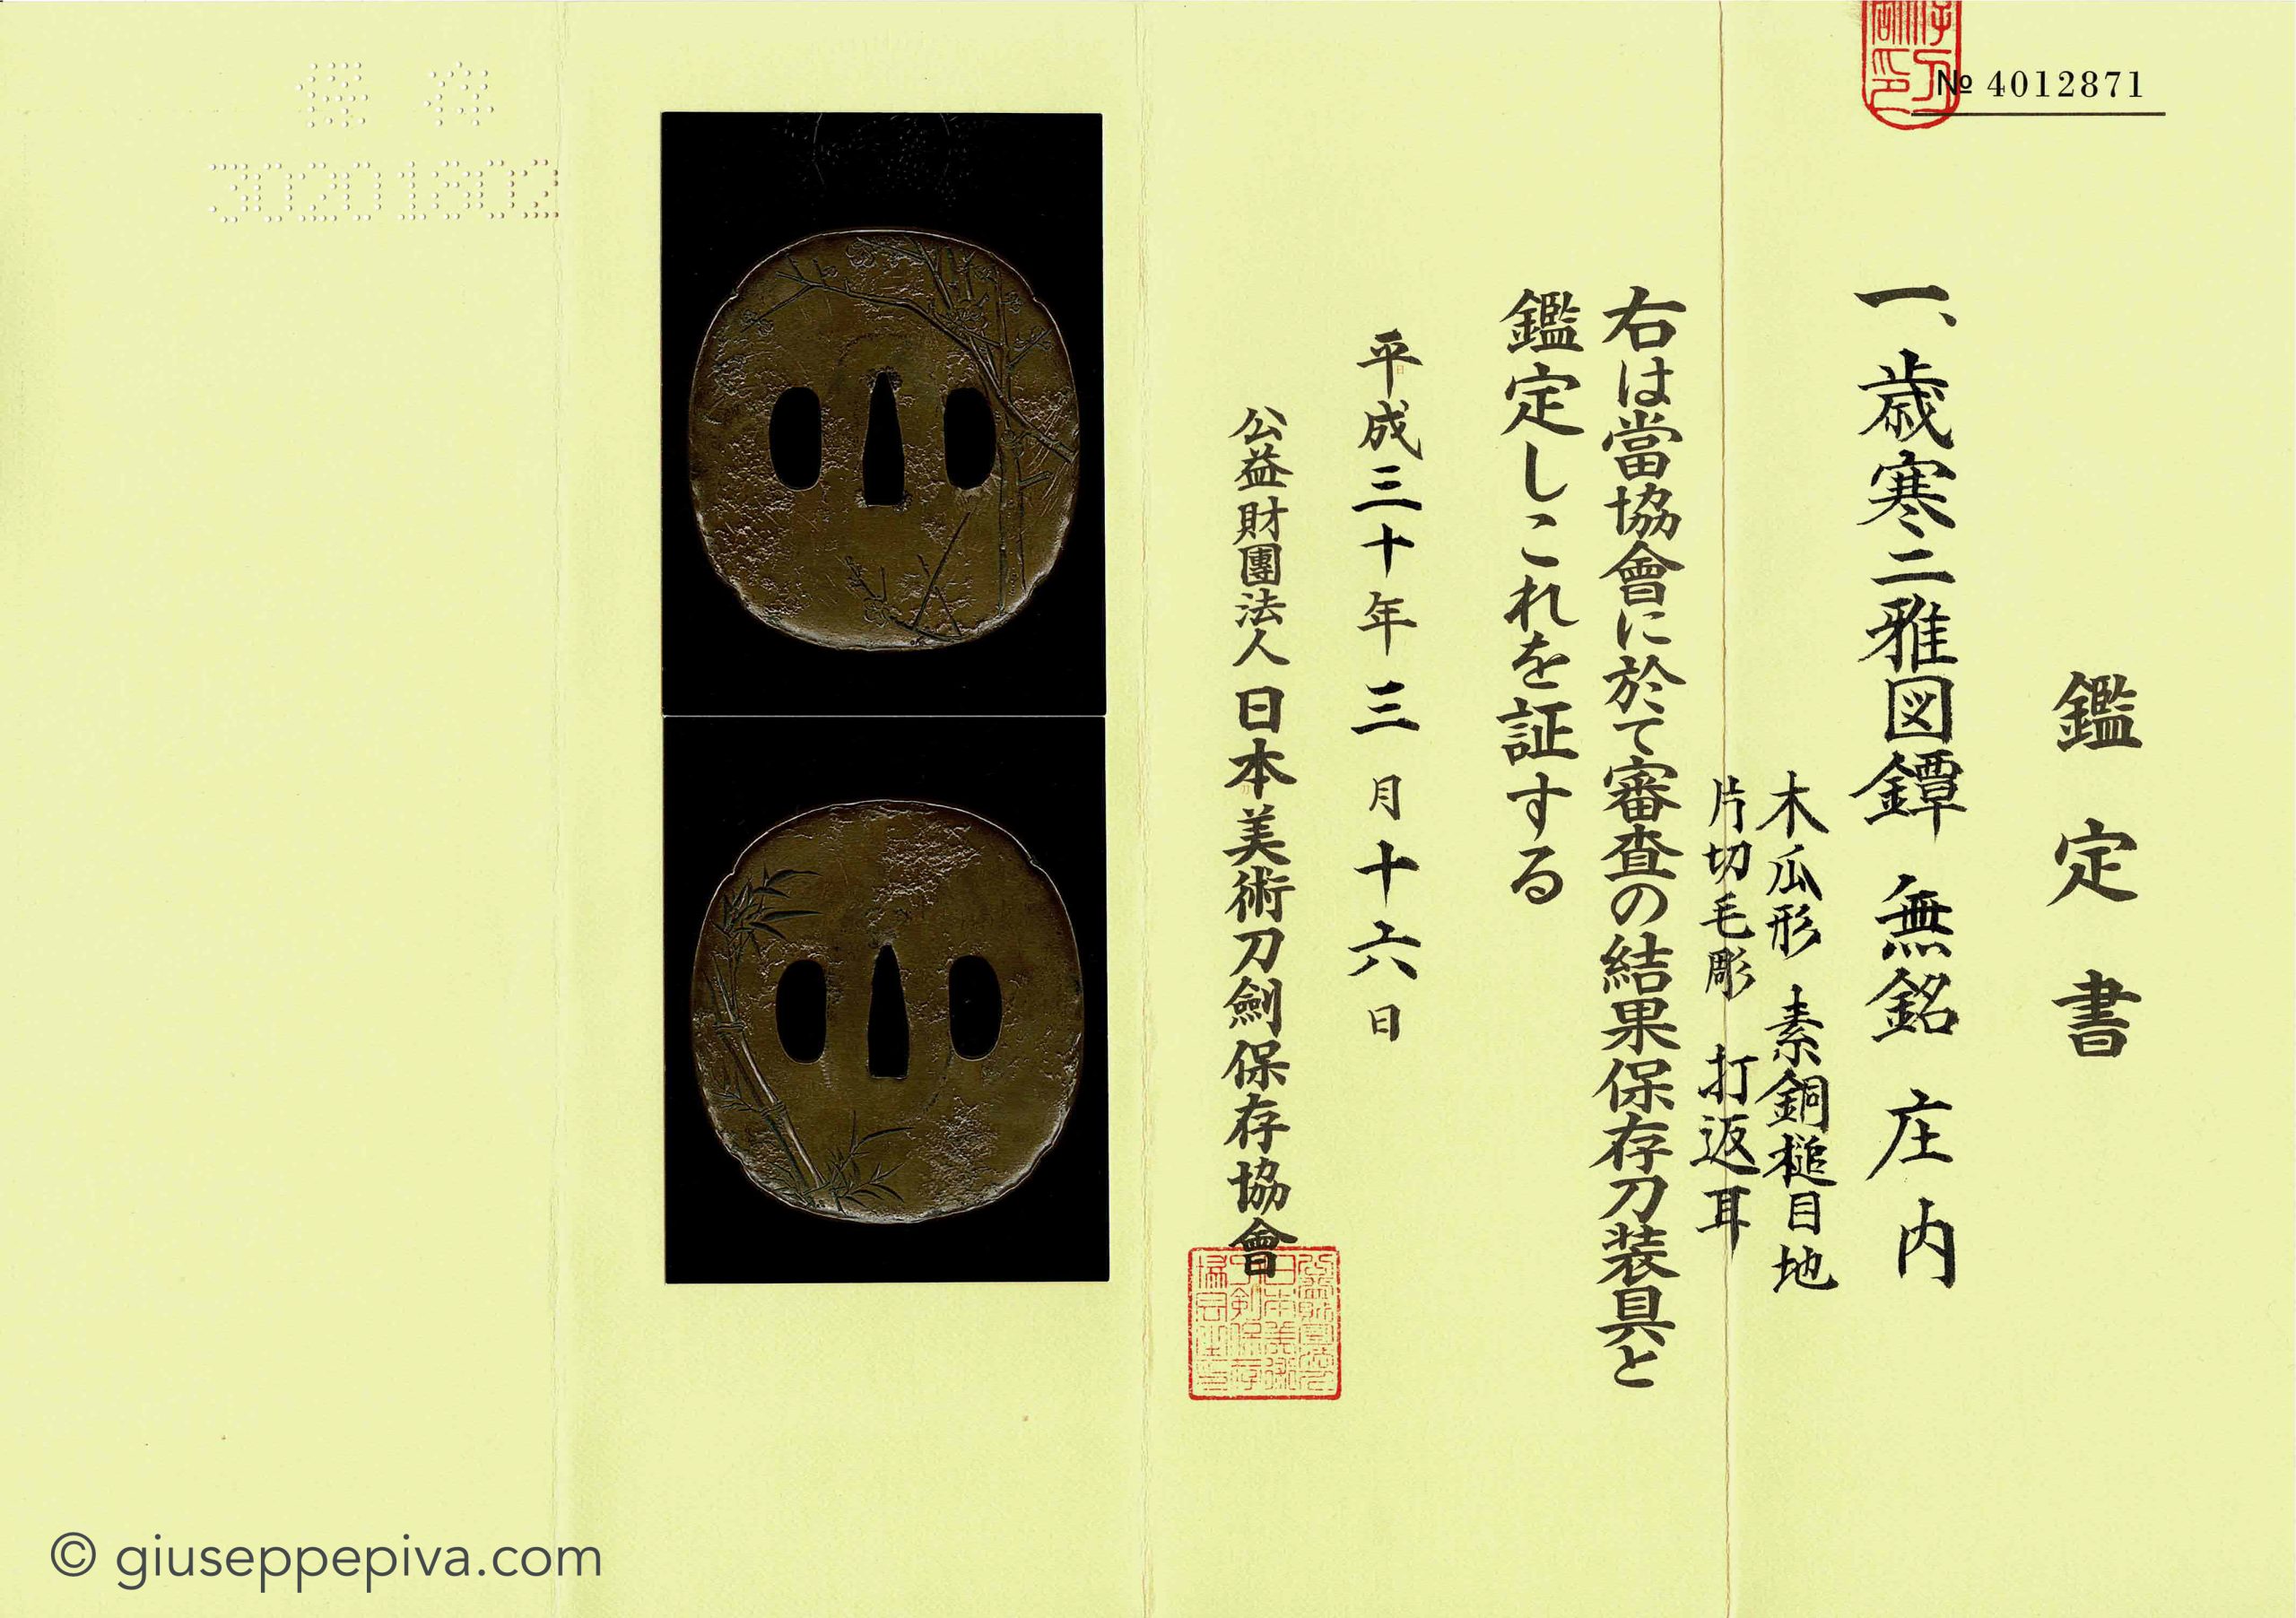 № 4012871
鑑定書
一、歳寒二雅図鐔 無銘 庄内
木瓜形 素銅槌目地
片切毛彫 打返耳
右は當協會に於て審査の結果保存刀装具と
鑑定しこれを証する
平成三十年三月十六日
公益財團法人日本美術刀劍保存協會
保存
30201802
© giuseppepiva.com